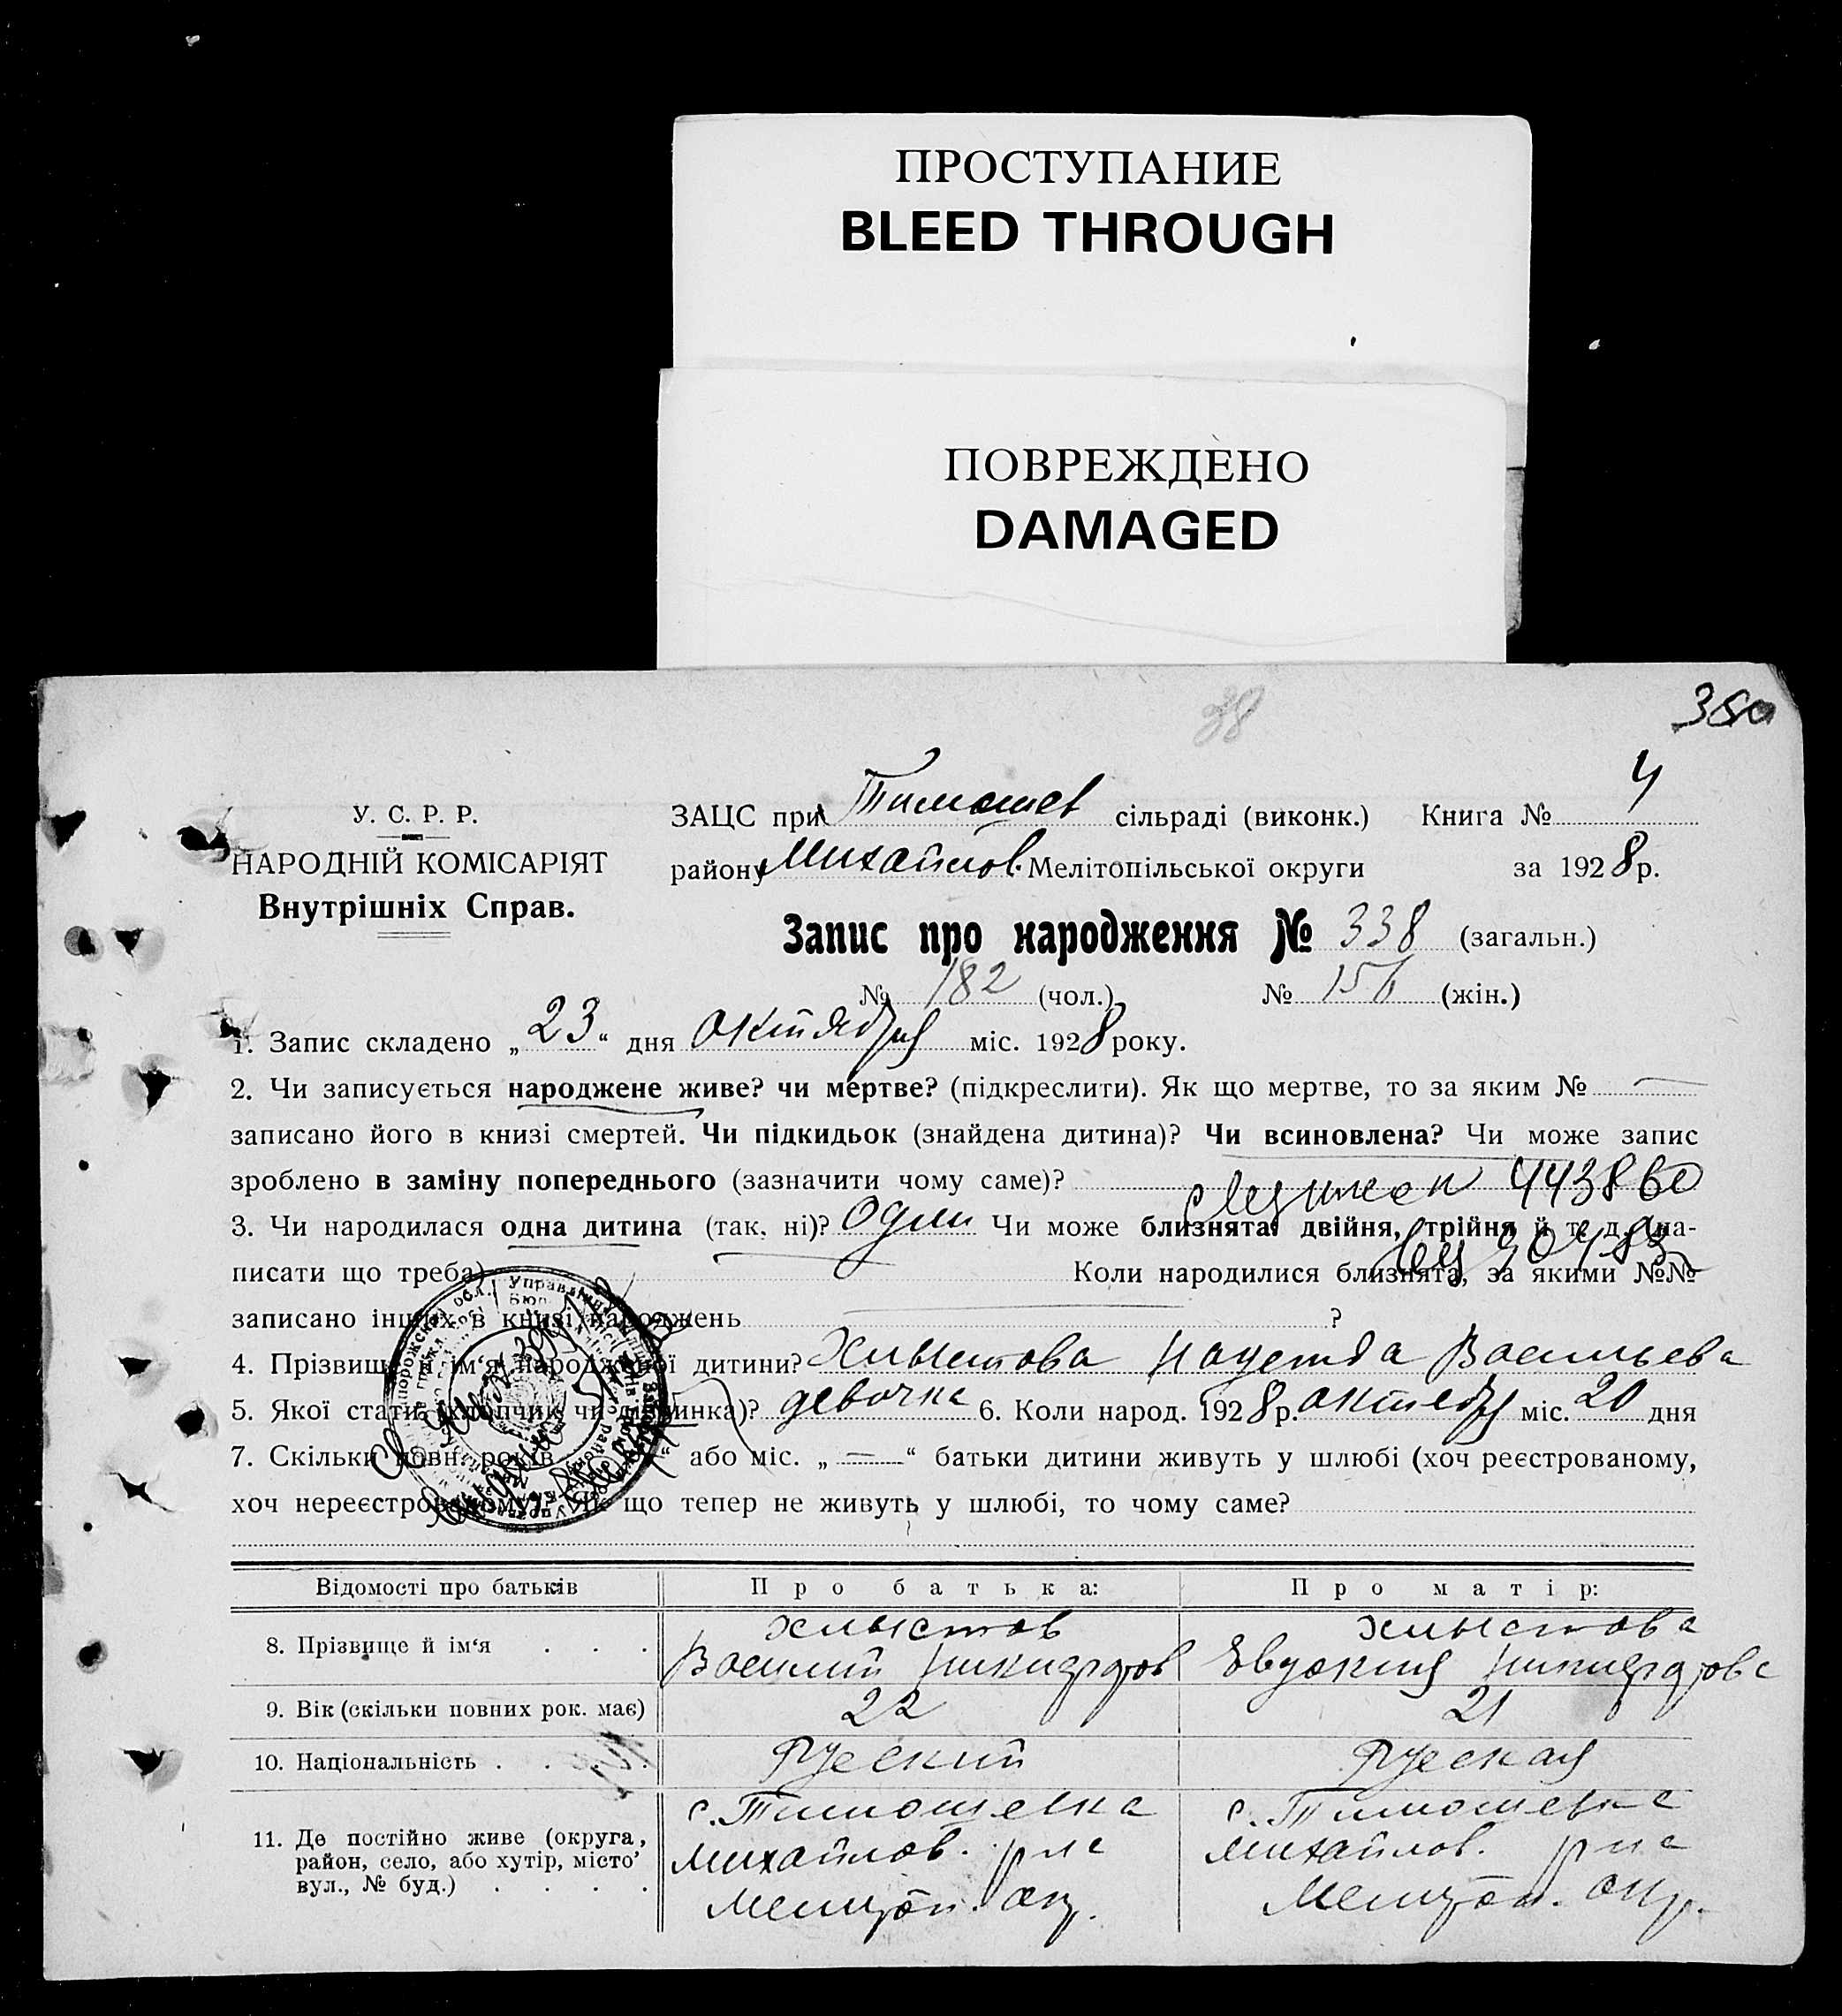 ПРОСТУПАНИЕ
BLEED THROUGH
ПОВРЕЖДЕНО
DAMAGED
38
У. С. Р. Р.
НАРОДНІЙ КОМІСАРІЯТ
Внутрішніх Справ.
ЗАЦС при Тимошев сільраді (виконк.) Книга № 4
району Михайлов. Мелітопільської округи за 1928 р.
Запис про народження № 338 (загальн.)
№ 182 (чол.) № 156 (жін.)
1. Запис складено „23“ дня октября міс. 1928 року.
2. Чи записується народжене живе? чи мертве? (підкреслити). Як що мертве, то за яким № —
записано його в книзі смертей. Чи підкидьок (знайдена дитина)? Чи всиновлена? Чи може запис
зроблено в заміну попереднього (зазначити чому саме)?
443860
3. Чи народилася одна дитина (так, ні)? Один Чи може близнята: двійня, трійня й т. д. (на-
писати що треба) Коли народилися близнята, за якими №№
записано інших в книзі народжень ?
4. Прізвище й ім‘я народженої дитини? Хлыстова Надежда Васильева
5. Якої статі (хлопчик чи дівчинка)? девочка 6. Коли народ. 1928 р. октября міс. 20 дня
7. Скільки повн. років або міс. „ — “ батьки дитини живуть у шлюбі (хоч реєстрованому,
хоч нереєстрованому). Як що тепер не живуть у шлюбі, то чому саме?
Відомості про батьків Про батька: Про матір:
8. Прізвище й ім‘я . . . Хлыстов Хлыстова
Василий Никифоров Евдокия Никифорова
9. Вік (скільки повних рок. має) 22 21
10. Національність . . . . Руский Руская
11. Де постійно живе (округа, район, село, або хутір, місто’ вул., № буд.) . . . .
с. Тимошевка с. Тимошевка
Михайлов. р-на Михайлов. р-на
Мелитоп. окр. Мелитоп. окр.